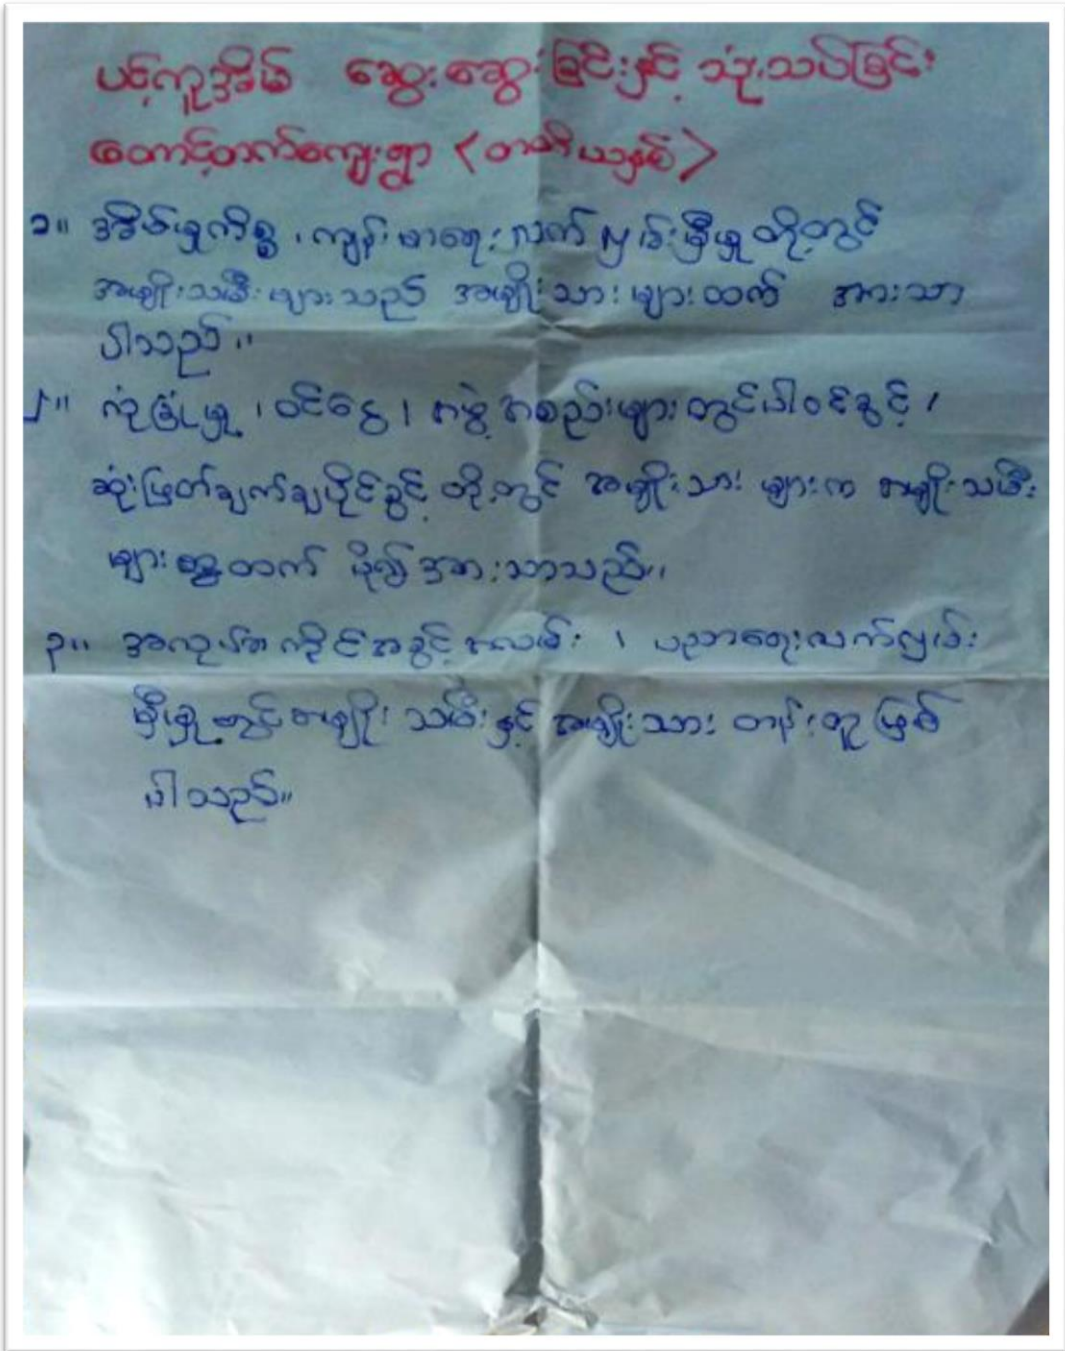 ပင့်ကူအိမ် ဆွေးဆွေးခြင်းနှင့် သုံးသပ်ခြင်း
တောင့်တက်ကျေးရွာ <တတိယနှစ်>
၁။ အိမ်မှုကိစ္စ ၊ ကျန်းမာရေး လက်လှမ်းမှီမှု တို့တွင်
အမျိုးသမီးများသည် အမျိုးသားများထက် အားသာ
ပါသည်။
၂။ လုံခြုံမှု ၊ ဝင်ငွေ ၊ အဖွဲ့အစည်းများတွင်ပါဝင်ခွင့် ၊
ဆုံးဖြတ်ချက်ချပိုင်ခွင့် တို့တွင် အမျိုးသား များက အမျိုးသမီး
များ ထက် ပို၍ အားသာသည်။
၃။ အလုပ်အကိုင်အခွင့်အလမ်း ၊ ပညာရေးလက်လှမ်း
မှီမှု တွင် အမျိုး သမီးနှင့် အမျိုးသား တန်းတူ ဖြစ်
ပါသည်။